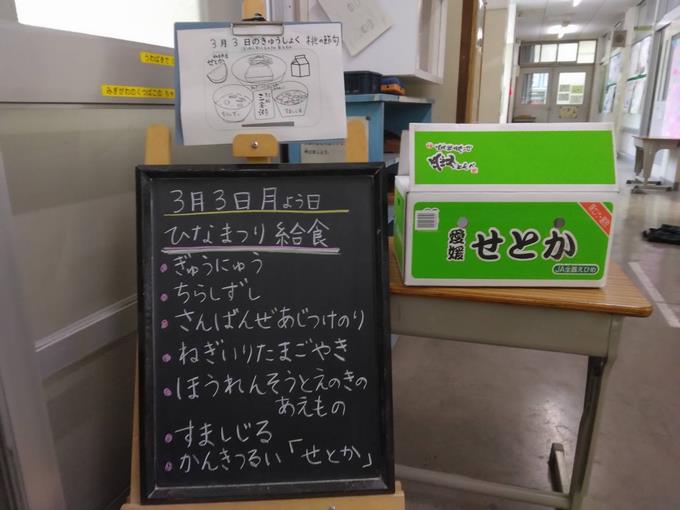 3月3日のきゅうしょく 桃の節句
せとか
うわばきで
みぎがわのくつばこの
3月3日月よう日
ひなまつり給食
ぎゅうにゅう
ちらしずし
さんばんぜあじつけのり
ねぎいりたまごやき
ほうれんそうとえのきの
あえもの
すましじる
かんきつるい「せとか」
愛媛
せとか
JA全農えひめ